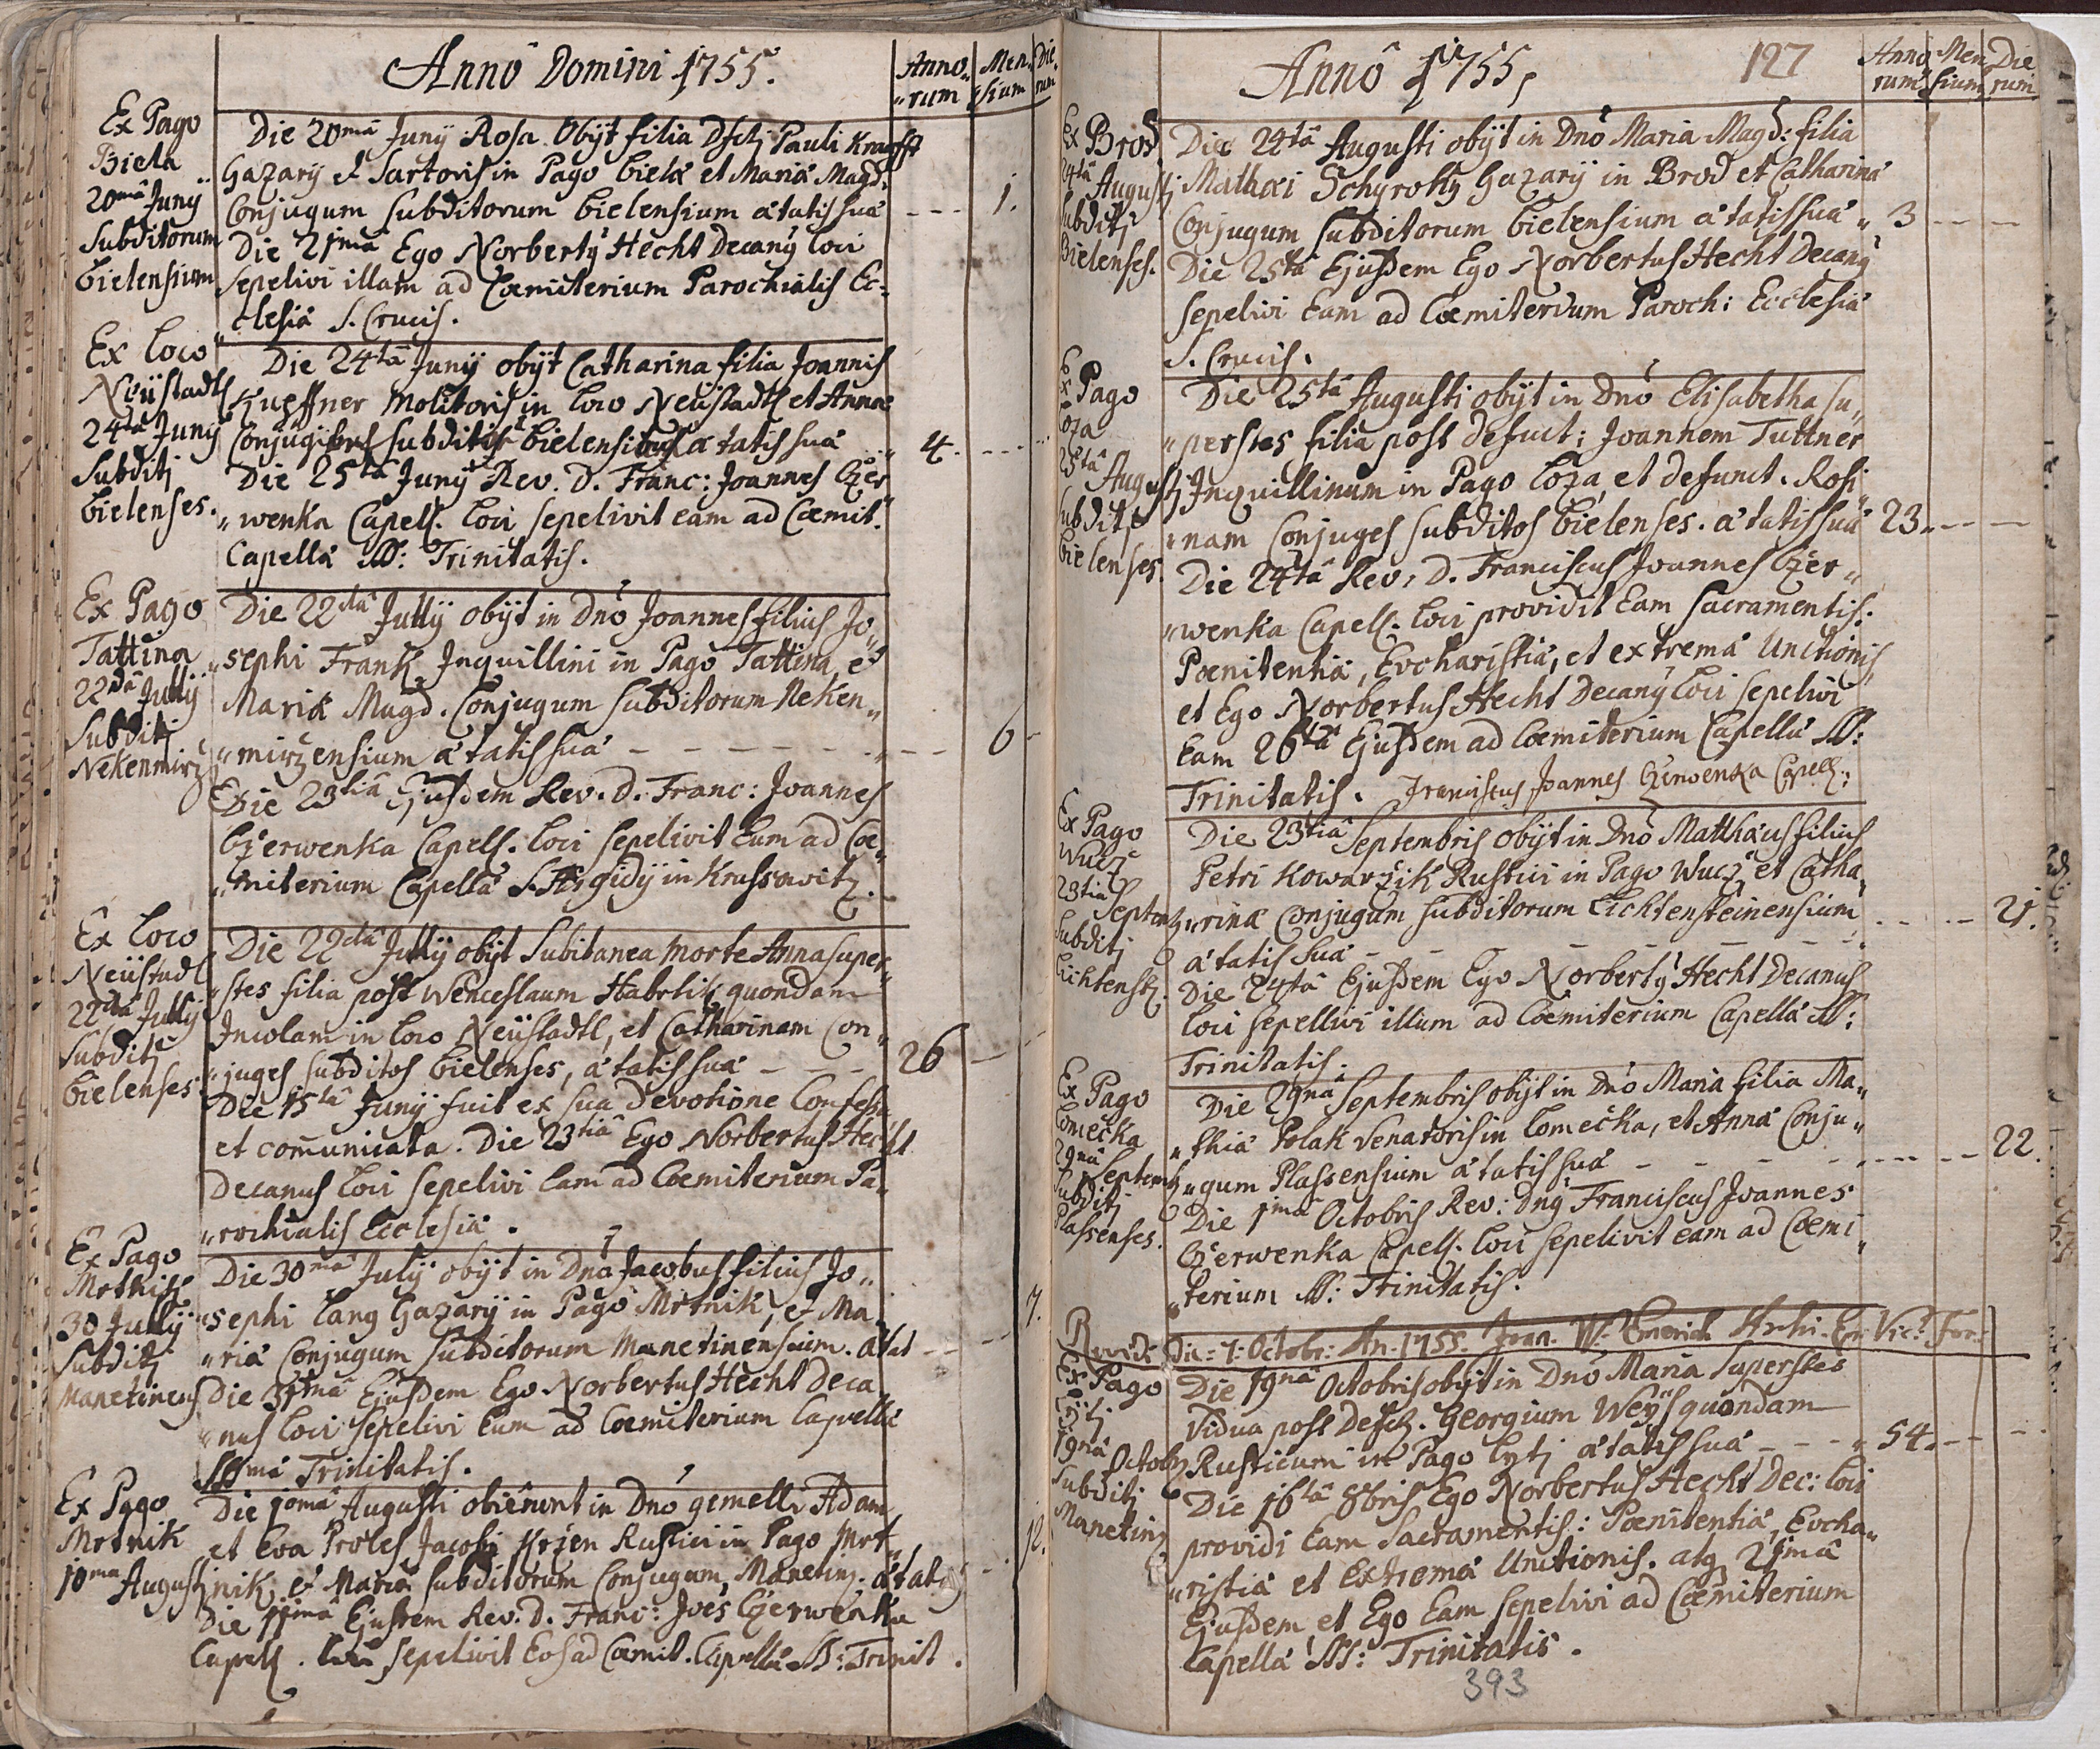 Anno Domini 1755.
Anno-
rum
Men-
sium
Die-
rum
Ex Pago
Biela
20mâ Junÿ
Subditorum
bielensium
Die 20mâ Junÿ Rosa Obÿt filia Dfctj Pauli Krafft
Gazarÿ et Sartoris in Pago biela et Maria Magd:
Conjugum subditorum bielensium ætatis suæ --- 1.
Die 21mâ Ego Norberty Hecht Decany loci
sepelivi illam ad Cœmiterium Parochialis Ec-
clesiæ S. Crucis.
Ex Loco
Neüstadtl
24tâ Junÿ
Subditj
bielenses.
Die 24tâ Junÿ obÿt Catharina filia Joannis
Kupffner Molitoris in loco Neüstadtl et Annæ
Conjugibus subditis bielensibus ætatis suæ 4. ---
Die 25tâ Junÿ Rev. D. Franc: Joannes Cžer
„wenka Capell. loci sepelivit eam ad Cœmit.
Capellæ SS: Trinitatis.
Ex Pago
Tattina
22dâ Jullÿ
Subditj
Nekenmirz
Die 22dâ Jullÿ obÿt in Dnō Joannes filius Jo„
„sephi Frank Inquillini in Pago Tattina, et
Mariæ Magd. Conjugum subditorum Neken„
„mirzensium ætatis suæ - - - - - - - 6 -
Die 23tiâ Ejusdem Rev. D. Franc: Joannes
Cžerwenka Capell. loci sepelivit Eum ad Cœ„
„miterium Capellæ S. Ægidÿ in Krassowitz.
Ex Loco
Neüstadl
22dâ Jullÿ
Subditj
bielenses
Die 22dâ Jullÿ obÿt Subitanea morte Anna super„
„stes filia post Wenceslaum Habrlik quondam
Incolam in loco Neüstadtl, et Catharinam Con„
„juges subditos bielenses, ætatis suæ - - - 26 -
Die 15tâ Junÿ fuit ex sua devotione Confessa
et com̄unicata. Die 23tiâ Ego Norbertus Hecht
Decanus loci sepelivi Eam ad Cœmiterium Pa„
„rochialis Ecclesiæ.
Ex Pago
Mrtnik
30 Jullÿ
Subditj
Manetinens
Die 30mâ Julÿ obÿt in Dnō Jacobus filius Jo„
„sephi Lang Gazarÿ in Pago Mrtnik, et Ma„ 7.
„riæ Conjugum subditorum Manetinensium. ætat --
Die 31mâ Ejusdem Ego Norbertus Hecht Deca
„nus loci sepelivi Eum ad Cœmiterium Capellæ
SSmæ Trinitatis.
Ex Pago
Mrtnik
10ma Augustj
Die 10mâ Augusti obierunt in Dnō gemelli Adam
et Eva Proles Jacobj Krzen Rustici in Pago Mrt„ 12.
nik, et Mariæ subditorum Conjugum Manetinz. ætatis
Die 11mâ Ejusdem Rev. D. Franc: Joēs Cžerwenka
Capell. loci sepelivit Eos ad Cœmit. Capellæ SS: Trinit.
Anno 1755,
127
Anno
rum
Men
sium
Die
rum
Ex Brod
24tâ
Augustj
Subditj
Bielenses.
Die 24tâ Augusti obÿt in Dnō Maria Magd: filia
Mathæi Schyrokÿ Gazarÿ in Brod et Catharinæ
Conjugum subditorum bielensium ætatis suæ „ 3 -- --
Die 25tâ Ejusdem Ego Norbertus Hecht Decany
sepelivi Eam ad Cœmiterium Paroch: Ecclesiæ
S. Crucis.
Ex Pago
Loza
25tâ
Augustj
Subditj
bielenses.
Die 25tâ Augusti obÿt in Dnō Elisabetha su„
„perstes filia post defuct: Joannem Tuttner
Inquillinum in Pago Loza, et defunct. Rosi„
„nam Conjuges subditos bielenses. ætatis suæ 23. -- --
Die 24tâ Rev. D. Franciscus Joannes Cžer„
„wenka Capell. loci providit Eam sacramentis:
Pœnitentiæ, Evcharistiæ, et extremæ Unctionis,
et Ego Norbertus Hecht Decany loci sepelivi
Eam 26tâ Ejusdem ad Cœmiterium Capellæ SS:
Trinitatis. Franciscus Joannes Czerwenka Capell:
Ex Pago
Wucž
23tiâ
Septembr
Subditj
Lichtenstz.
Die 23tiâ Septembris obÿt in Dnō Matthæus filius
Petri Kowaržik Rustici in Pago Wucž, et Catha„
„rinæ Conjugum subditorum Lichtensteinensium --- 21.
ætatis suæ - - - - -
Die 24tâ Ejusdem Ego Norberty Hecht Decanus
loci sepellivi illum ad Cœmiterium Capellæ SS:
Trinitatis.
Ex Pago
Lomečka
29nâ
Septembr
Subditj
Plassenses.
Die 29nâ Septembris obÿt in Dnō Maria filia Ma„
„thiæ Polak Venatoris in Lomečka, et Annæ Conju„
„gum Plassensium ætatis suæ - - - - 22.
Die 1mâ Octobris Rev: Dny Franciscus Joannes
Cžerwenka Capell. loci sepelivit eam ad Cœmi„
„terium SS: Trinitatis.
Revidi Die: 7: Octobr: An. 1755. Joan. W. Emerich Archi. Er. Vic: For:
Ex Pago
Lÿtj
19nâ
Octobr
Subditj
Manetinz
Die 19nâ Octobris obÿt in Dnō Maria Superstes
Vidua post Defctz. Georgium Weÿs quondam
Rusticum in Pago Lytj ætatis suæ - - - 54. -- --
Die 16tâ 8bris Ego Norbertus Hecht Dec: loci
providi Eam Sacramentis: Pœnitentiæ, Evcha„
„ristiæ et Extremæ Unctionis. atq 21mâ
Ejusdem et Ego Eam sepelivi ad Cœmiterium
Capellæ SS: Trinitatis.
393